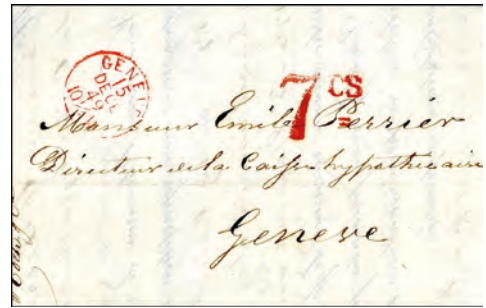 GENEV
15
DEC
49
10
7 CS
Monsieur Emile Perrier
Directeur de la Caisse hypothecaire
Geneve